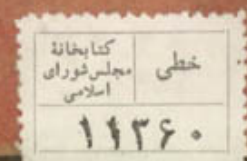 کتابخانهٔ
مجلس شورای
اسلامی
خطی
۱۱۳۶۰